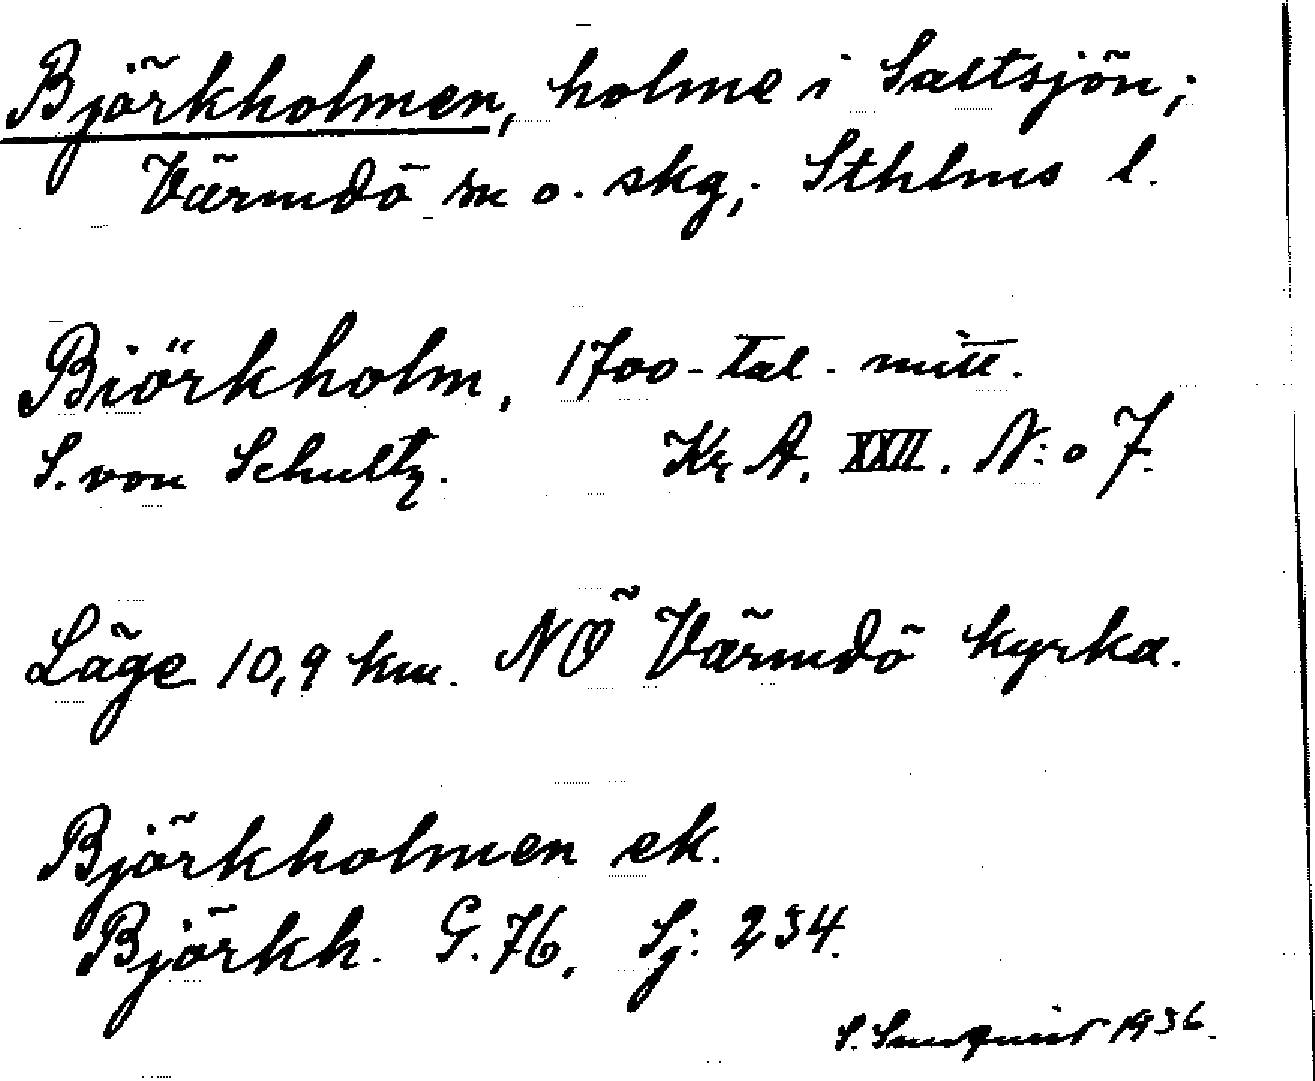 Björkholmen, holme i Saltsjön;
Värmdö sn o. skg, Sthlms l.
Biörkholm, 1700-tal. mitt.
S. von Schultz. Kr A. XXII. N:o 7.
Läge 10,9 km. NÖ Värmdö kyrka.
Björkholmen ek.
Björkh. G. 76, Sj: 234.
S. 1936.